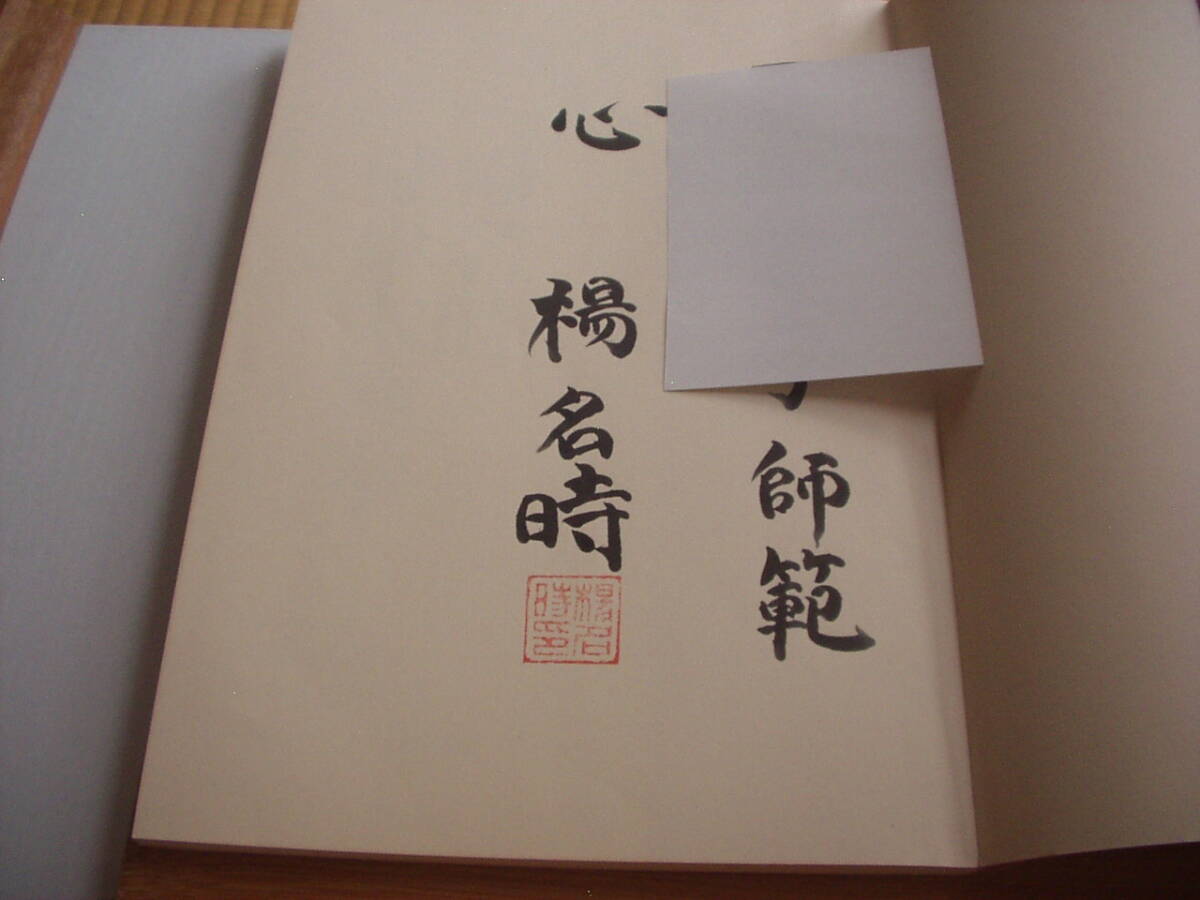 師範
心
楊名時
楊名時印